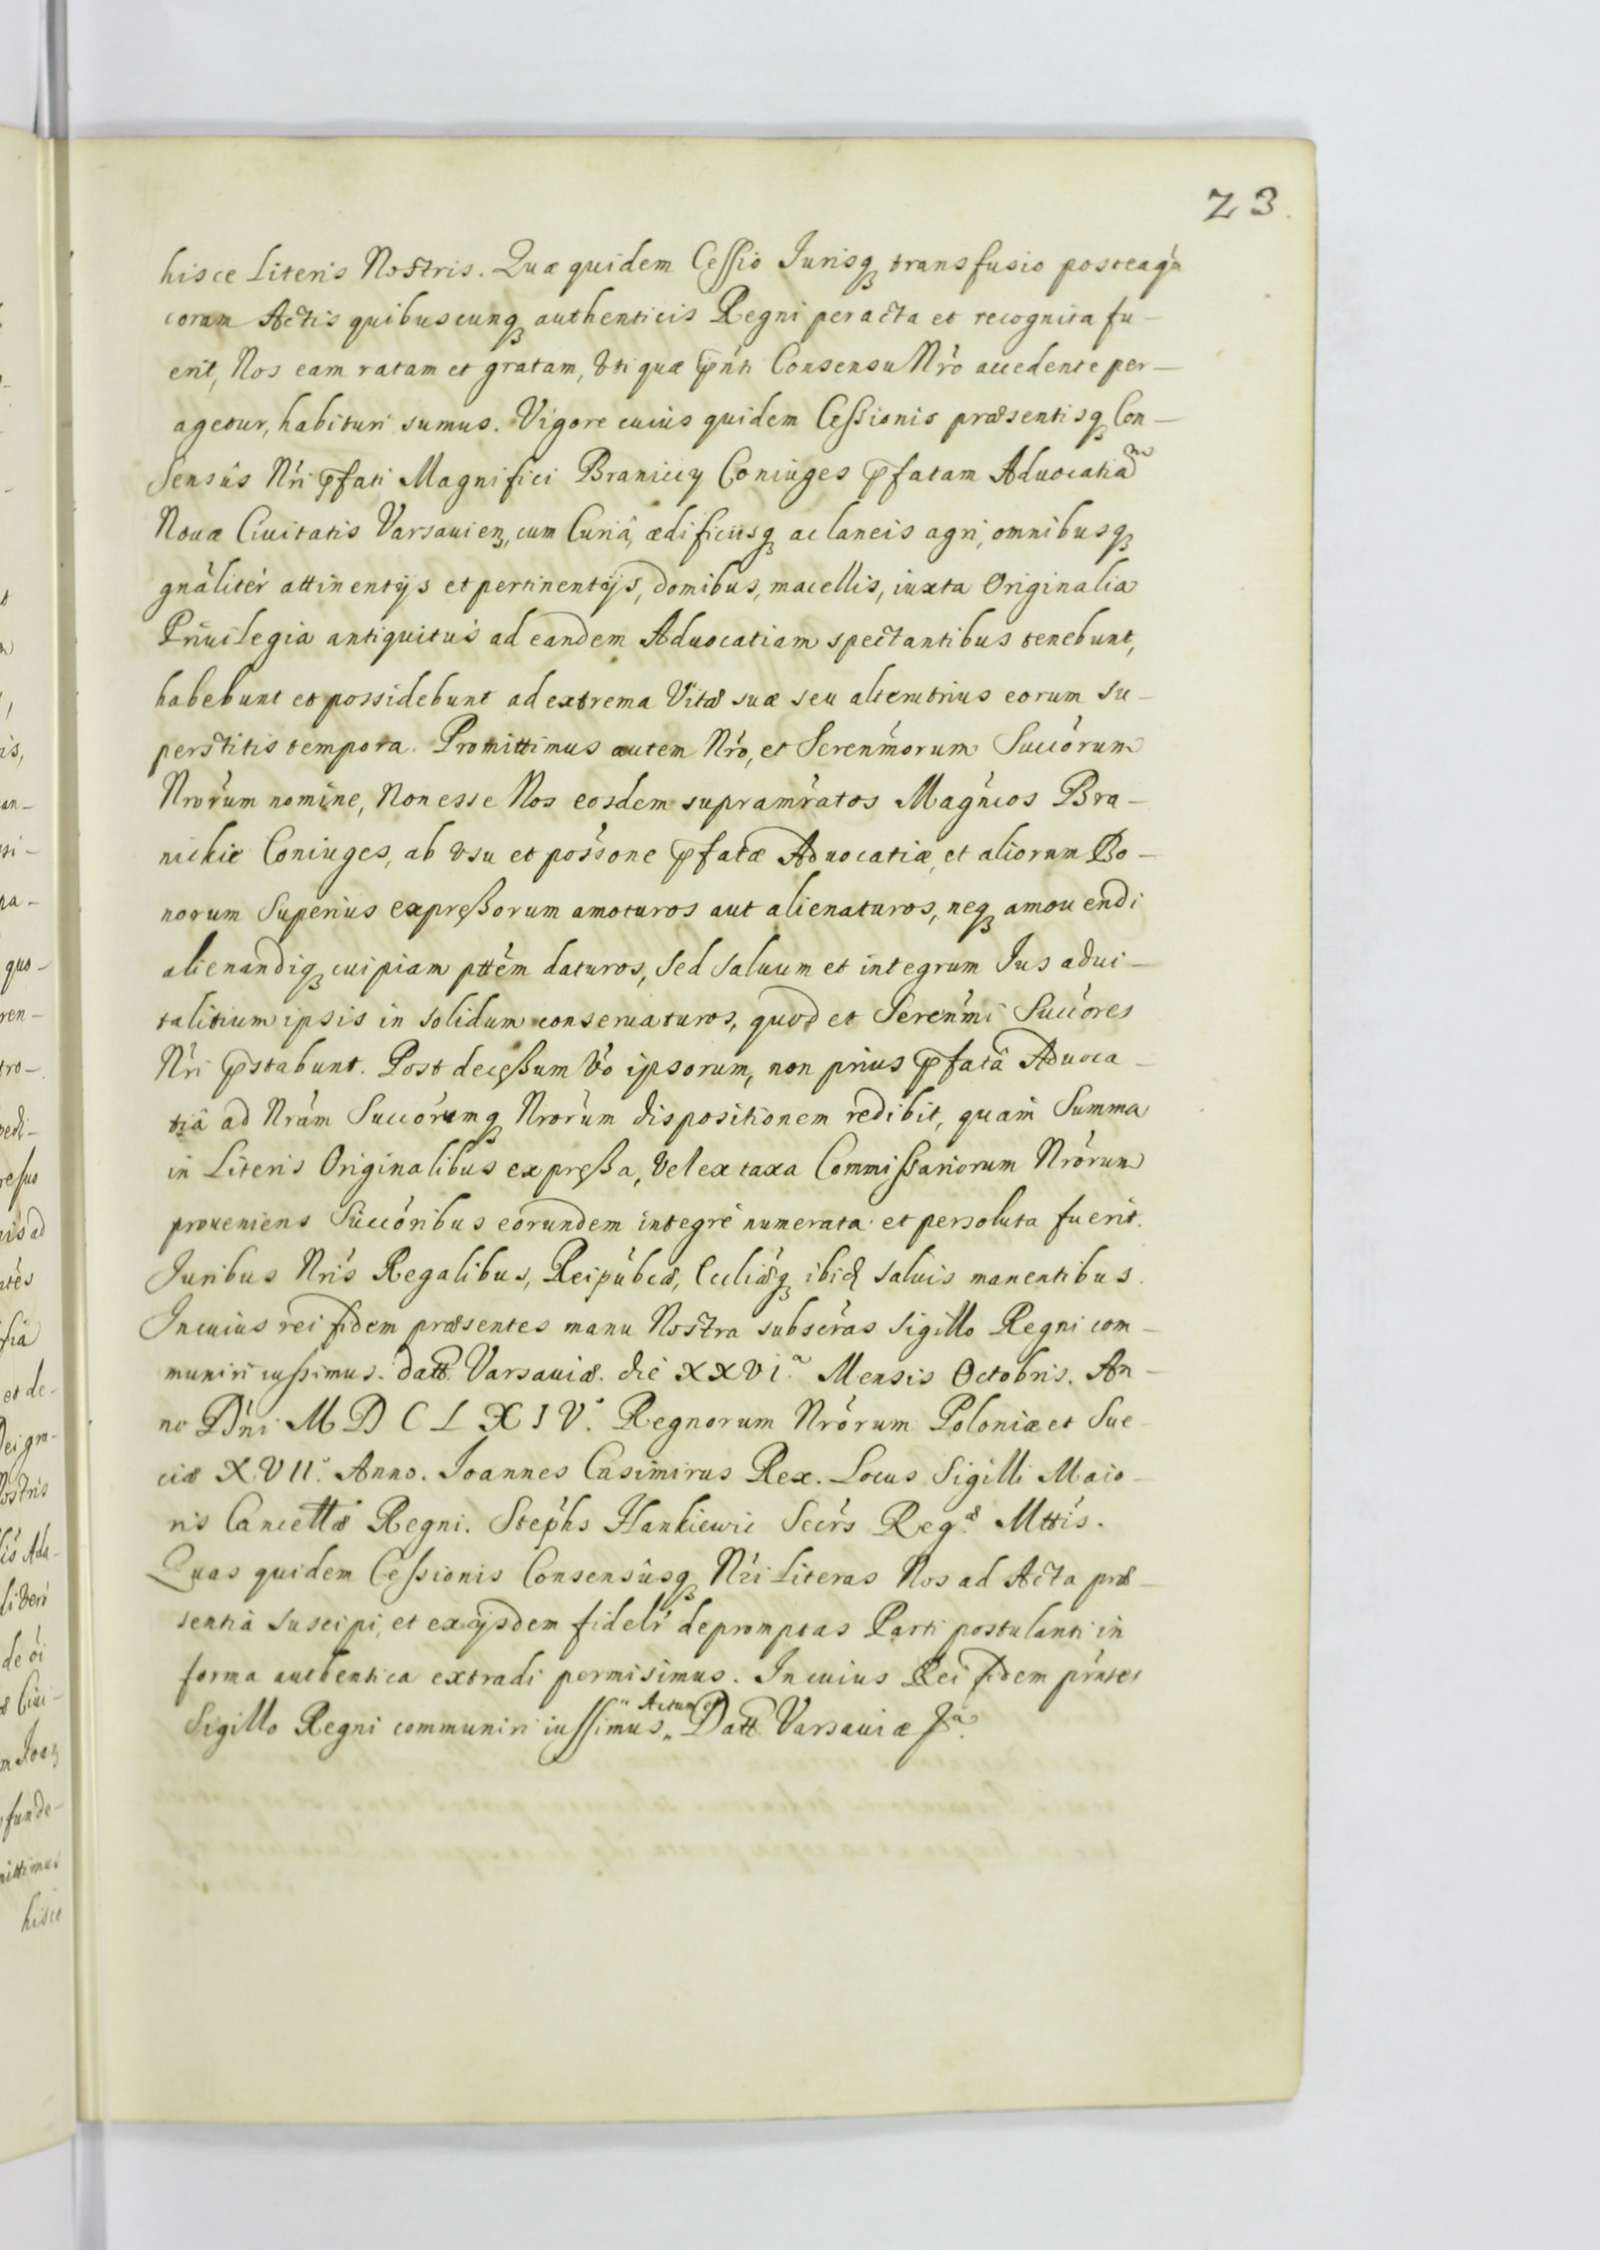 23.
hisce Literis Nostris. Quæ quidem Cessio Jurisq₃ transfusio posteaq̀
coram Actis quibuscunq₃ authenticis Regni peracta et recognita fu-
erit, Nos eam ratam et gratam, vti quæ pńti Consensu Nŕo accedente per-
agetur, habituri sumus. Vigore cuius quidem Cessionis præsentisq₃ Con-
sensûs Nŕi pfati Magnifici Braniccy Coniuges pfatam Aduocatiaᵐ
Nouæ Ciuitatis Varsauien₃, cum Curiâ, ædificiisq₃ ac laneis agri, omnibusq₃
gnáliter attinentÿs et pertinentÿs, domibus, macellis, iuxta Originalia
Priuilegia antiquitus ad eandem Aduocatiam spectantibus tenebunt,
habebunt et possidebunt ad extrema Vitæ suæ seu alterutrius eorum su-
perstitis tempora. Promittimus autem Nŕo, et Serenḿorum Succórum
Nrórum nomine, Non esse Nos eosdem supramŕatos Magńcos Bra-
nickie Coniuges, ab vsu et possóne pfatæ Aduocatiæ, et aliorum Bo-
norum Superius expreßorum amoturos aut alienaturos, neq₃ amouendi
alienandiq₃ cuipiam pttém daturos, sed saluum et integrum Ius adui-
talitium ipsis in solidum conseruaturos, quod et Serenḿi Succóres
Nŕi pstabunt. Post deceßum v́o ipsorum, non prius pfatâ Aduoca-
tiâ ad Nrám Succórumq₃ Nrórum dispositionem redibit, quam Summa
in Literis Originalibus expreßa, vel ex taxa Commissariorum Nrórum
proueniens Succóribus eorundem integrè numerata et persoluta fuerit.
Juribus Nŕis Regalibus, Reipúbcæ, Ecclíæq₃ ibid saluis manentibus.
In cuius rei fidem præsentes manu Nostra subscŕas Sigillo Regni com-
muniri iussimus. Datt Varsauiæ. die XXVIᵃ. Mensis Octobris. An-
no Dńi M D C L X I V°. Regnorum Nrórum Poloniæ et Sue-
ciæ XVII°. Anno. Joannes Casimirus Rex. Locus Sigilli Maio-
ris Cancellæ Regni. Stephs Hankiewic Secŕs Regᵃᵉ Mttis.
Quas quidem Cessionis Consensûsq₃ Nŕi Literas Nos ad Acta præ-
sentia suscipi, et ex ijsdem fidelŕ depromptas Parti postulanti in
forma authentica extradi permisimus. In cuius Rei fidem pŕntes
Sigillo Regni communiri iussimus. Actum et Datt Varsauiæ